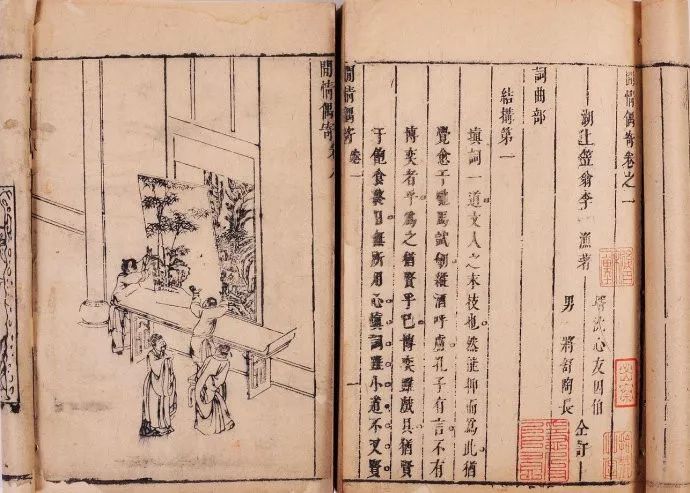 閒情偶寄卷之一
湖上笠翁李漁著
壻沈心友因伯
男將舒陶長
仝訂
詞曲部
結構第一
填詞一道文人之末技也。然能抑而為此。猶
覺愈于馳馬試劍縱酒呼盧。孔子有言。不有
博奕者乎。為之猶賢乎已。博奕雖戲具。猶賢
于飽食終日無所用心。填詞雖小道。不又賢
閒情偶寄 卷一
一
閒情偶寄卷八